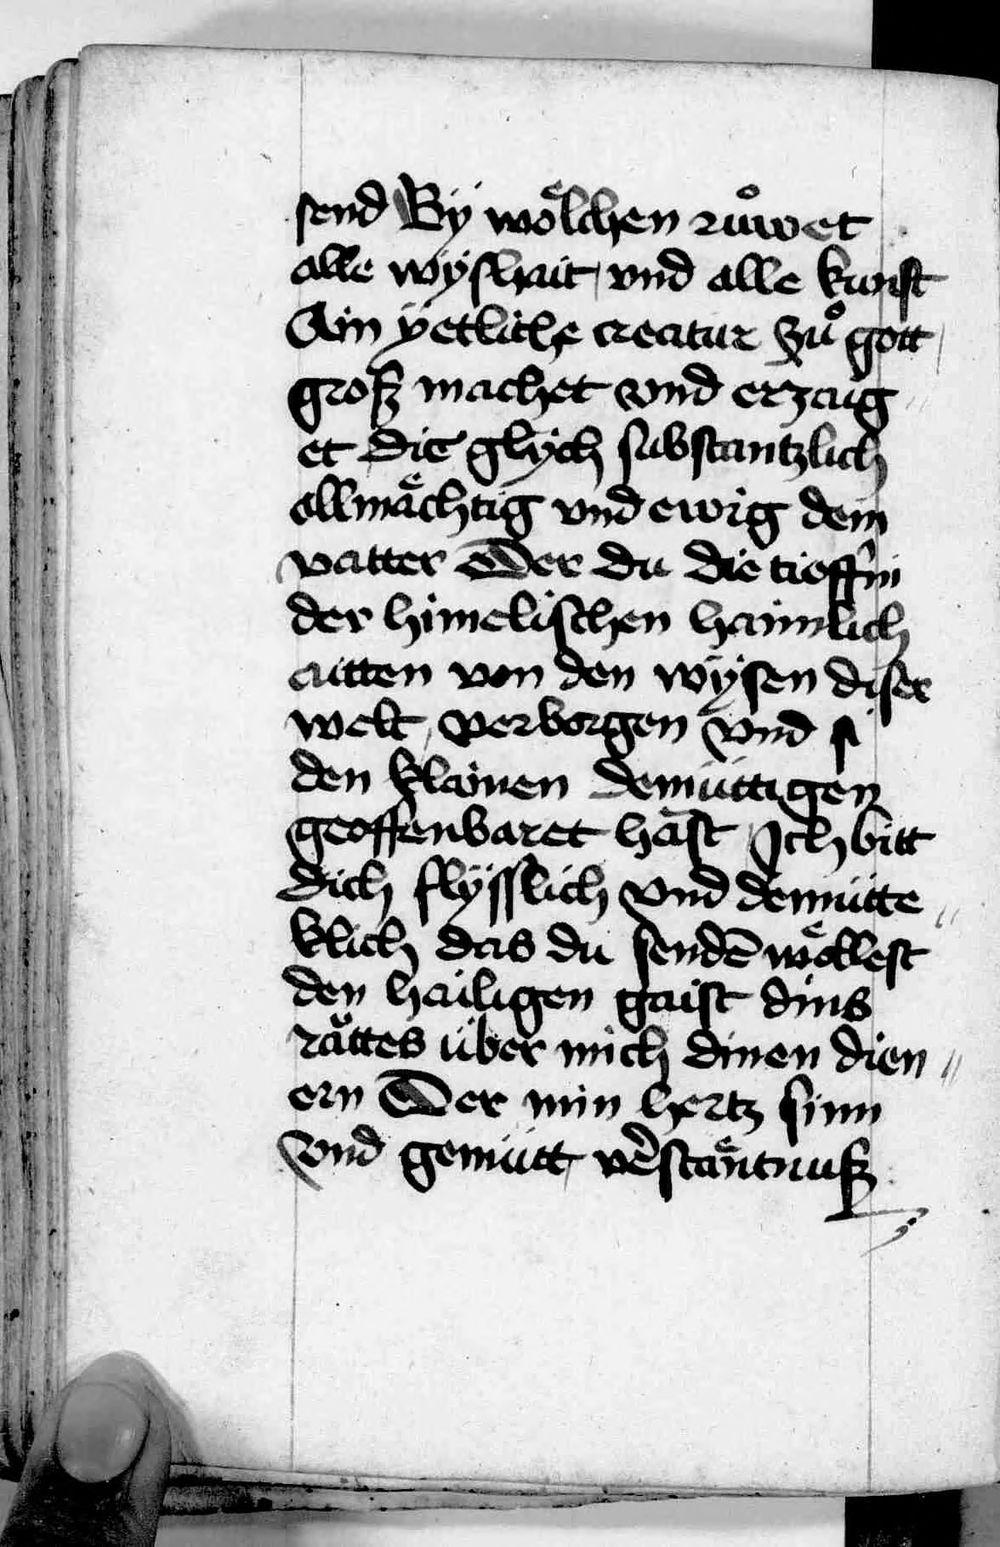 send Bÿ woͤlchen ruͦwet
alle wÿshait / vnd alle kunst
Ain ÿetliche creatur zuͦ gott /
groß machet vnd erzaig //
et die glÿch substantzlich
allmaͤchtig vnd ewig dem
vatter Der du die tieffin
der himelischen haimlich
aitten von den wÿsen diser
welt / verborgen vnd si
den klainen demüttigen
geoffenbaret hăst / Ich bitt
dich flÿsslich vnd demütte //
klich das du sendē woͤllest
den hailigen gaist dins
raͧttes über mich dinen dien //
ern Der min hertz sinn
vnd gemütt / v̉staͤntnuß